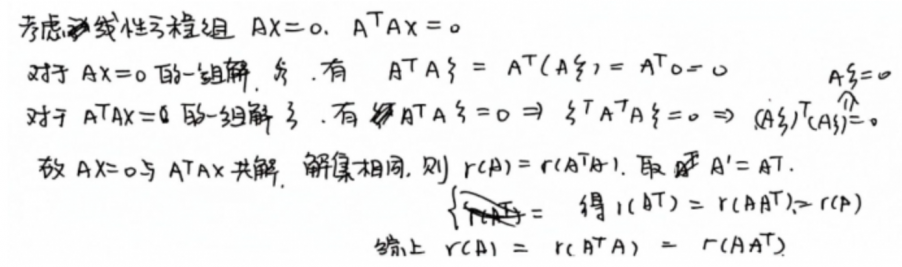 考虑线性方程组 AX=0. AᵀAX=0
对于 AX=0 的一组解 ξ, 有 AᵀAξ = Aᵀ(Aξ) = Aᵀ0 = 0
Aξ=0
⇑
对于 AᵀAX=0 的一组解 ξ, 有 AᵀAξ=0 ⇒ ξᵀAᵀAξ=0 ⇒ (Aξ)ᵀ(Aξ)=0
故 AX=0与 AᵀAX 共解, 解集相同, 则 r(A) = r(AᵀA). 取 A'=Aᵀ.
{ = 得 r(Aᵀ) = r(AAᵀ) = r(A)
综上 r(A) = r(AᵀA) = r(AAᵀ)